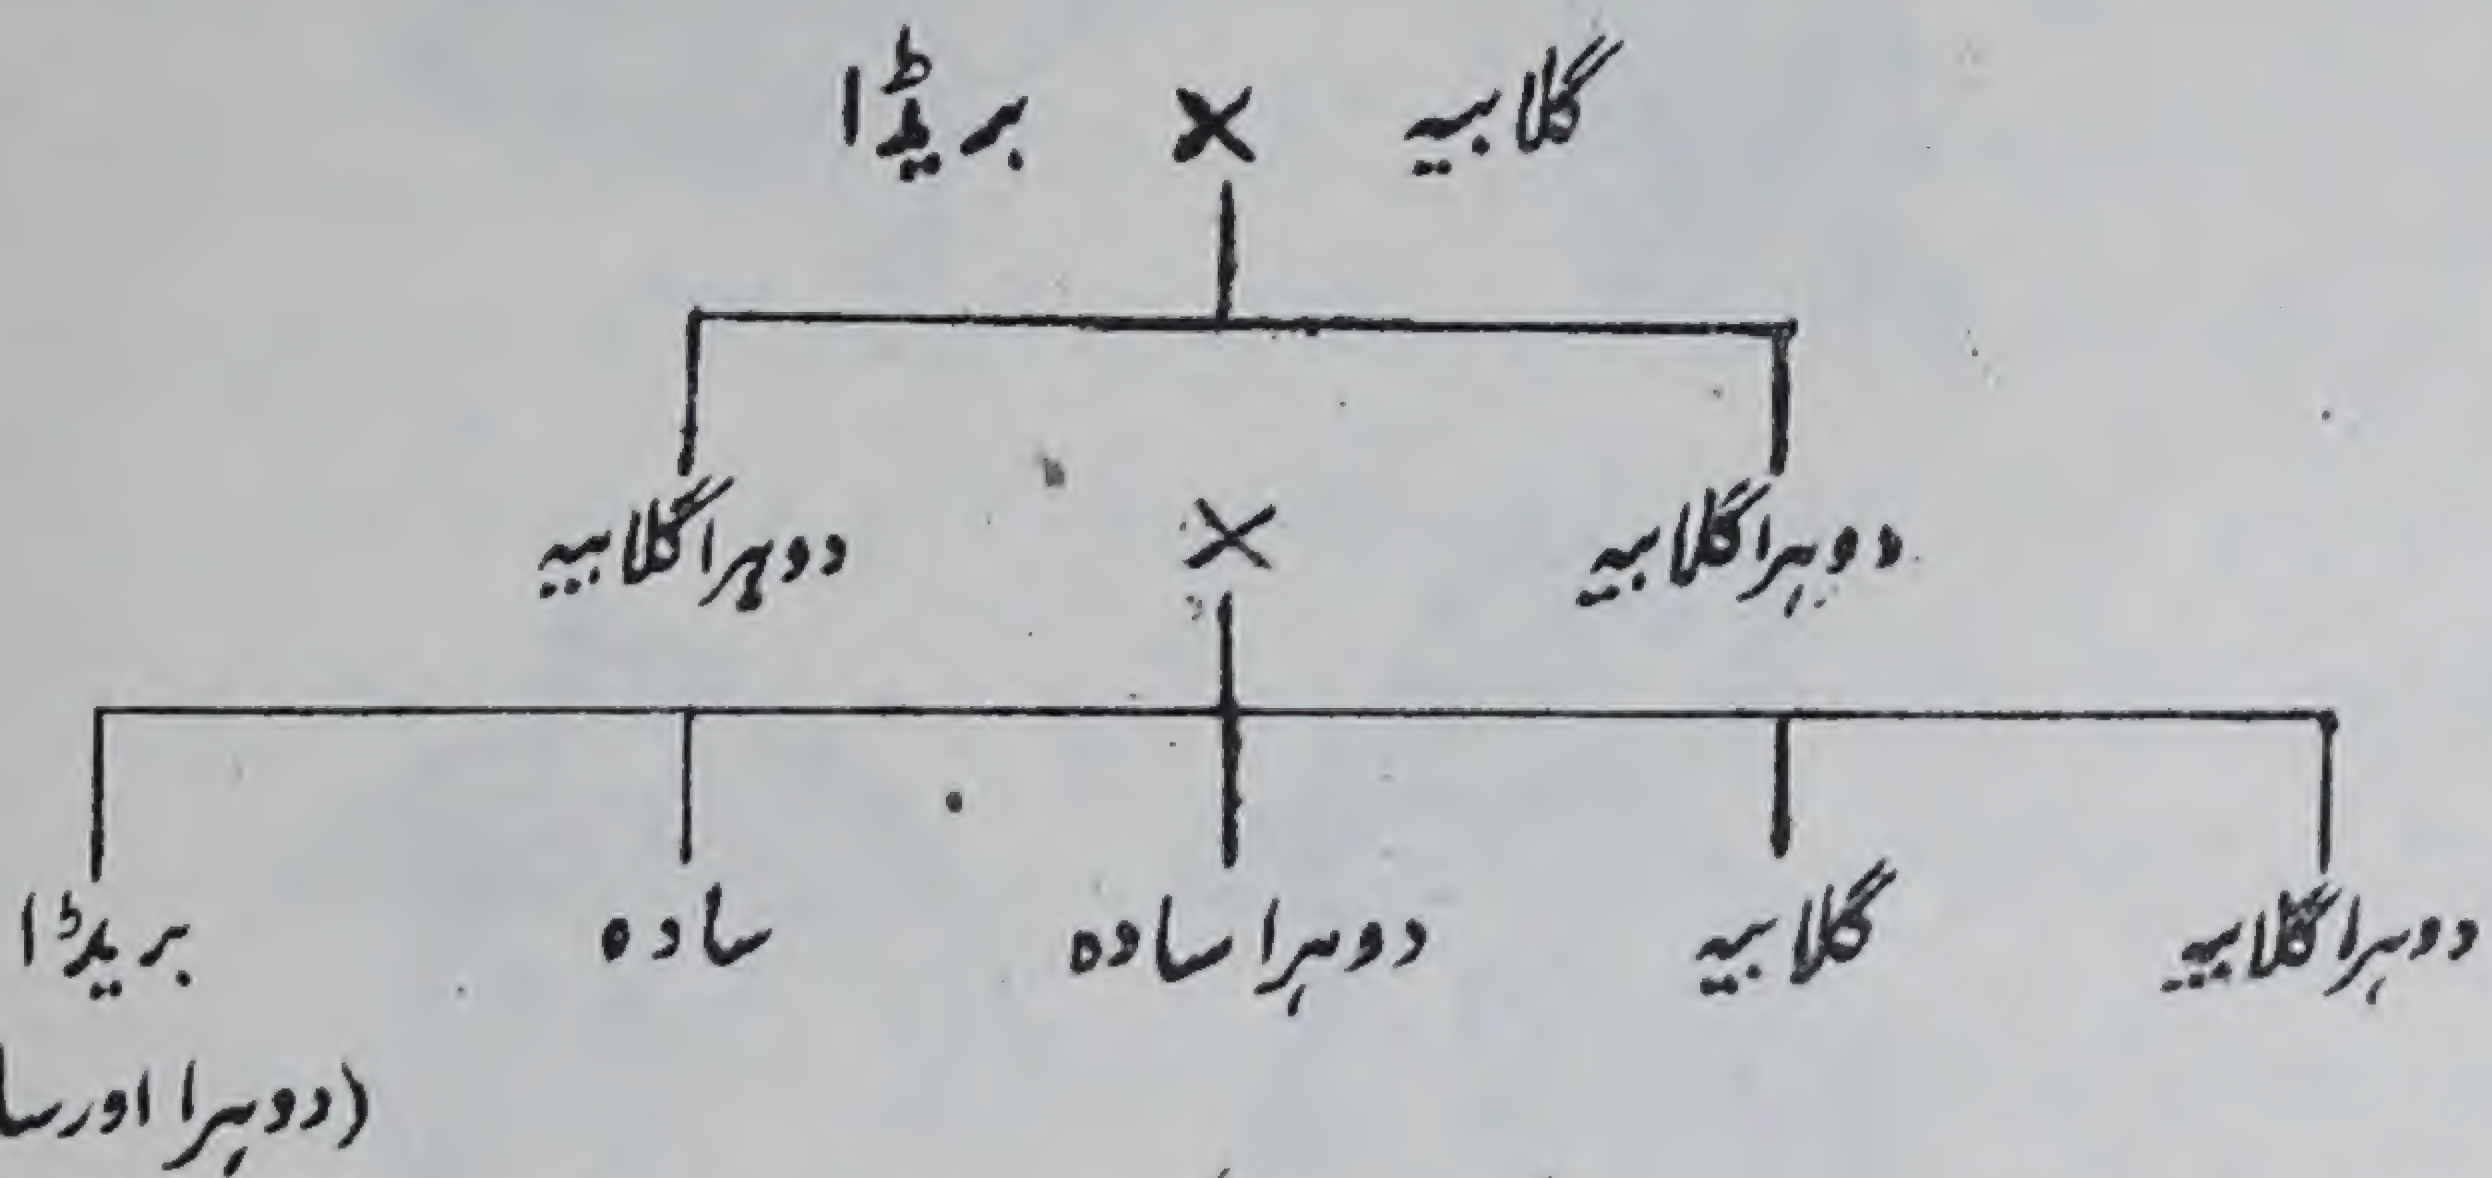 گلابیہ × بریڈا
دوہرا گلابیہ × دوہرا گلابیہ
دوہرا گلابیہ گلابیہ دوہرا سادہ سادہ بریڈا
(دوہرا اور